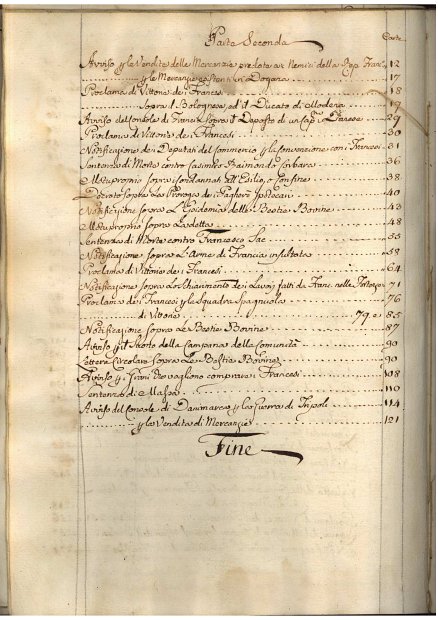 Parte Seconda
Carte
Avviso p la Vendita delle Mercanzie predate a' Nemici della Rep. Franc. 12
p le Mercanzie esistenti in Dogana 17
Proclama di Vittorie dei Francesi 18
Sopra il Bolognese, ed il Ducato di Modena 19
Avviso del Console di Francia sopra il Deposto di un Cap. Danese 29
Proclama di Vittorie dei Francesi 30
Notificazione dei Deputati del Commercio p la Convenzione con i Francesi 31
Sentenza di Morte contro Casimiro Raimondo Barbara 36
Motuproprio sopra i Condannati All' Esilio, o Confine 38
Decreto sopra La Proroga dei Pagherò Ipotecari 40
Notificazione sopra L'Epidemia delle Bestie Bovine 43
Motuproprio sopra 48
Sentenza di Morte contro Francesco 55
Notificazione sopra L'Arme di Francia insultata 58
Proclama di Vittorie dei Francesi 64
Notificazione sopra dei Lavori fatti da Franc. nelle Fortezze 71
Proclama dei Francesi p la Squadra Spagnuola 76
di Vittorie 79. e 85
Notificazione sopra Le Bestie Bovine 87
Avviso p il Suono della Campana della Comunità 90
Lettera Circolare sopra Le Bestie Bovine 90
Avviso p i Grani che vogliono comprare i Francesi 108
Sentenza di Massa 110
Avviso del Console di Danimarca p la Guerra di Tripoli 114
p la Vendita di Mercanzie 121
Fine